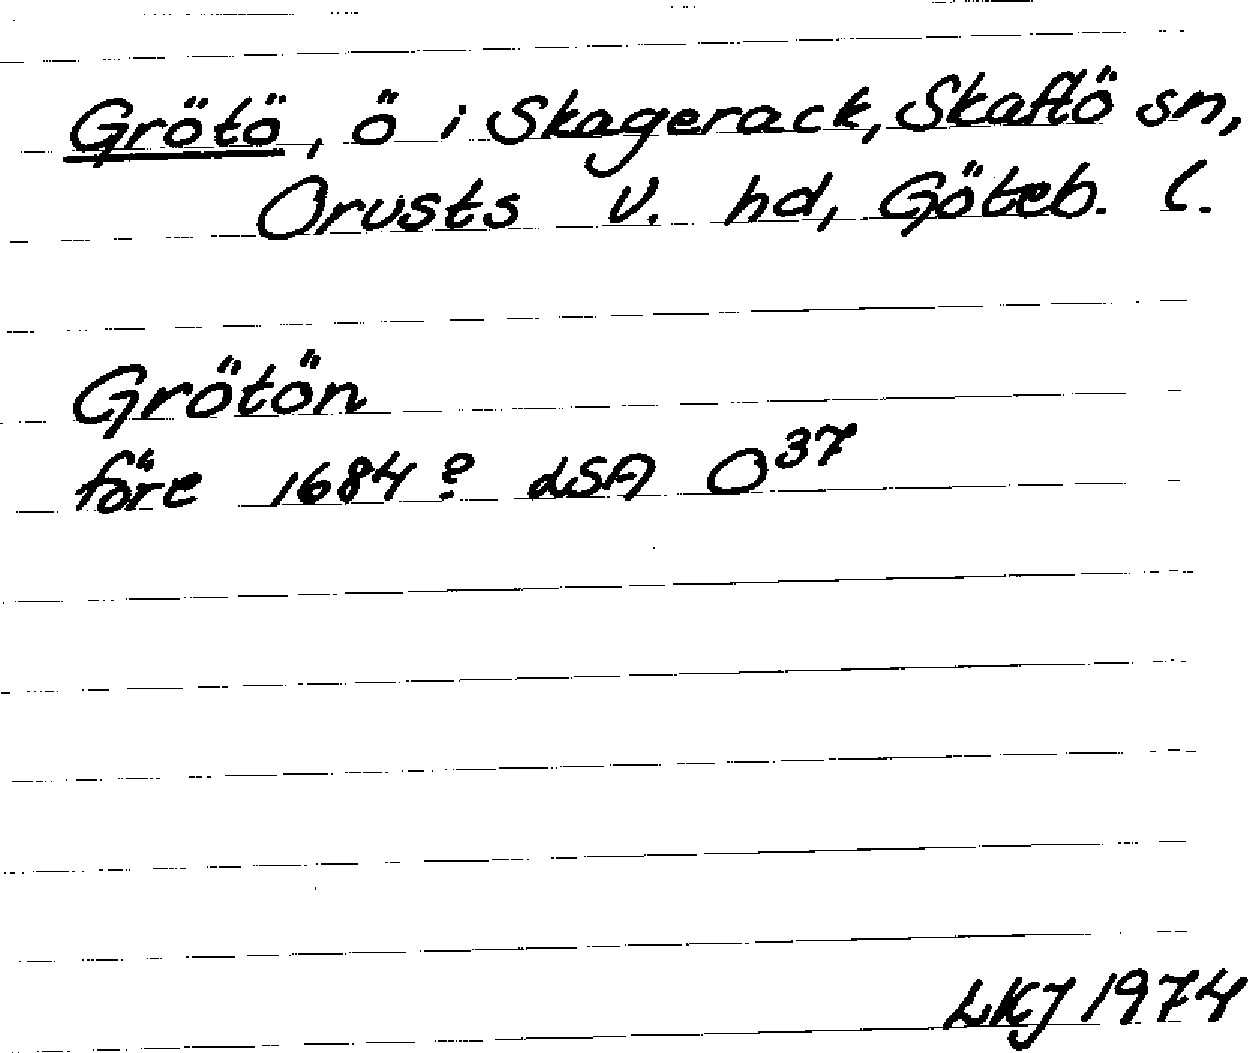 Grötö, ö i Skagerack, Skaftö sn,
Orusts v. hd, Göteb. l.
Grötön
före 1684? LSA O37
LKJ 1974